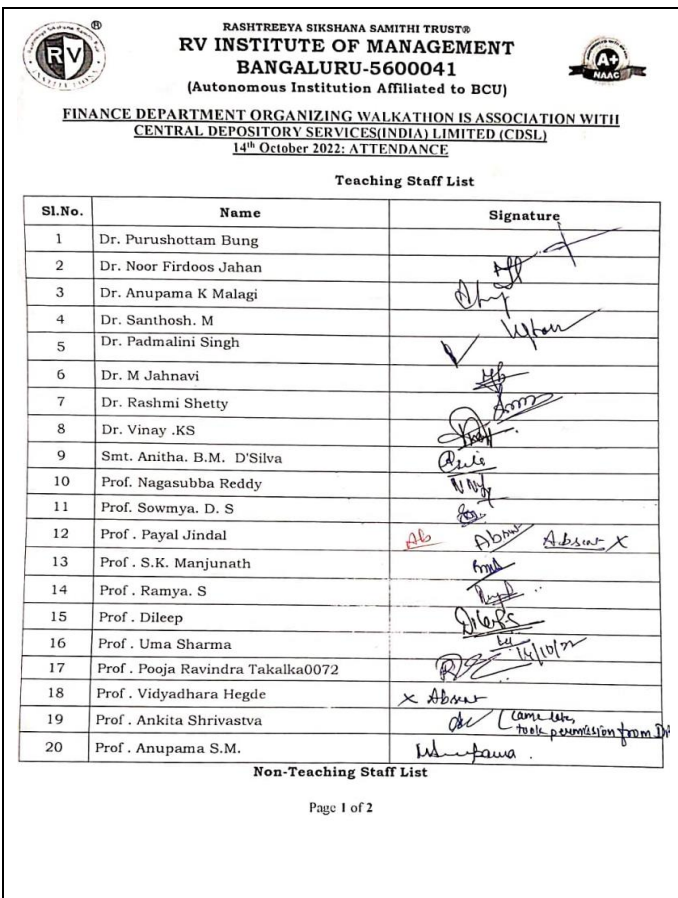 RASHTREEYA SIKSHANA SAMITHI TRUST®
RV INSTITUTE OF MANAGEMENT
BANGALURU-5600041
(Autonomous Institution Affiliated to BCU)
RV
®
A+
NAAC
FINANCE DEPARTMENT ORGANIZING WALKATHON IS ASSOCIATION WITH
CENTRAL DEPOSITORY SERVICES(INDIA) LIMITED (CDSL)
14th October 2022: ATTENDANCE
Teaching Staff List
Sl.No. Name Signature
1 Dr. Purushottam Bung
2 Dr. Noor Firdoos Jahan
3 Dr. Anupama K Malagi
4 Dr. Santhosh. M
5 Dr. Padmalini Singh
6 Dr. M Jahnavi
7 Dr. Rashmi Shetty
8 Dr. Vinay .KS
9 Smt. Anitha. B.M. D'Silva
10 Prof. Nagasubba Reddy
11 Prof. Sowmya. D. S
12 Prof . Payal Jindal Ab Absent Absent X
13 Prof . S.K. Manjunath
14 Prof . Ramya. S
15 Prof . Dileep
16 Prof . Uma Sharma
14/10/22
17 Prof . Pooja Ravindra Takalka0072
18 Prof . Vidyadhara Hegde x Absent
19 Prof . Ankita Shrivastva (came late,
took permission from
20 Prof . Anupama S.M.
Non-Teaching Staff List
Page 1 of 2